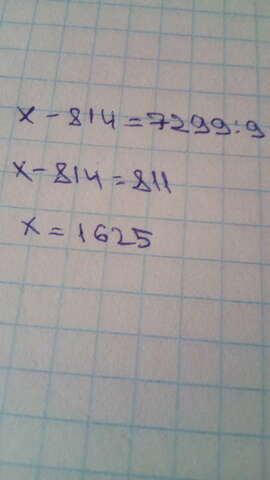 x - 814 = 7299:9
x - 814 = 811
x = 1625